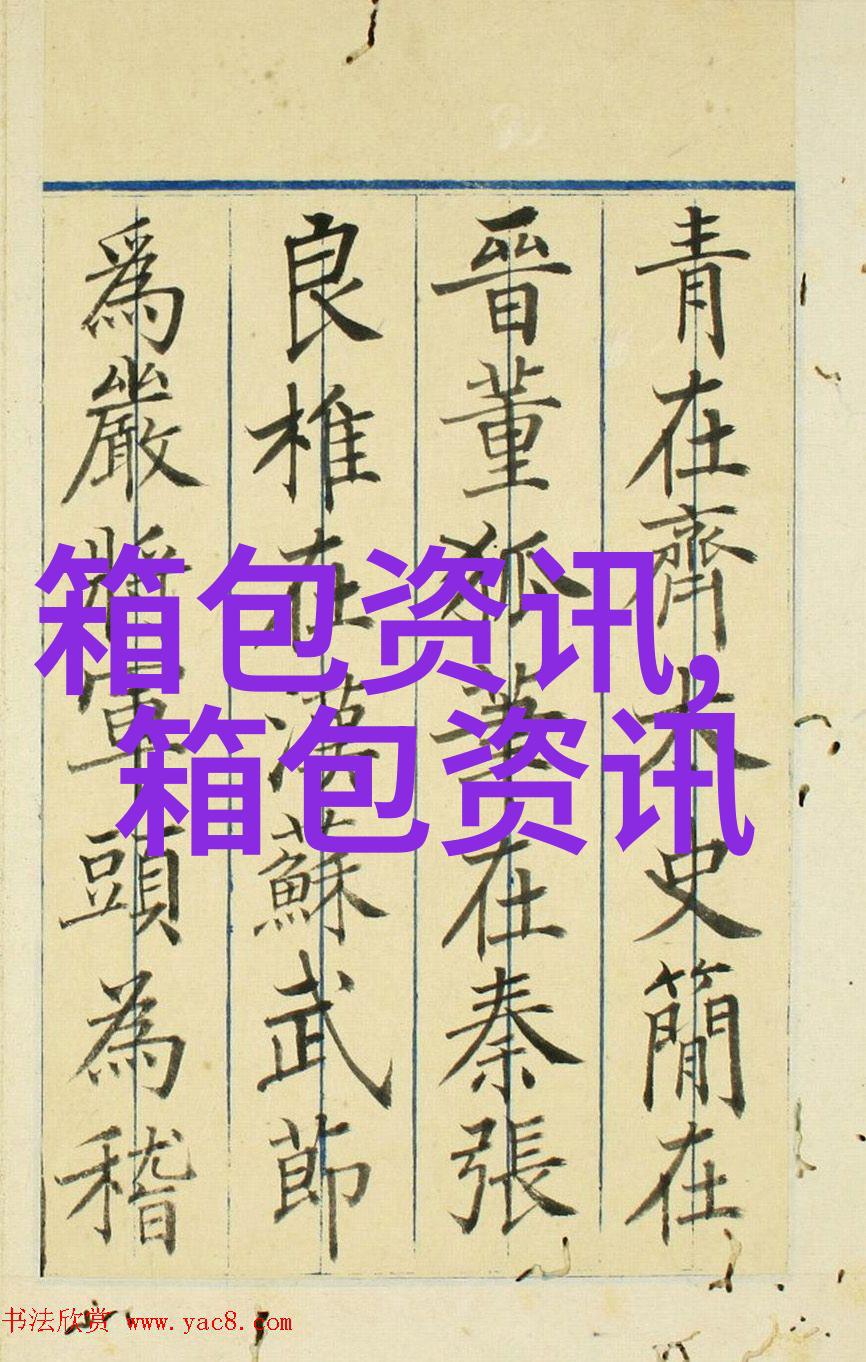 青在齊太史簡在
晉董狐筆在秦張
良椎在漢蘇武節
爲嚴將軍頭為稽
箱包资讯,
箱包资讯
书法欣赏 www.yac8.com